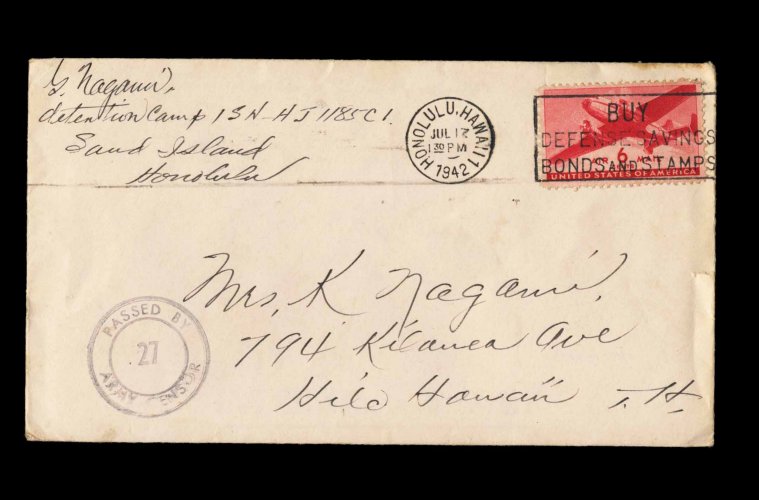 Y. Nagami.
detention Camp ISN-HJ 1185CI.
Sand Island
Honolulu
HONOLULU, HAWAII
JUL 17
130 PM
1942
BUY
DEFENSE SAVINGS
BONDS AND STAMPS
6
UNITED STATES OF AMERICA
Mrs. K Nagami,
794 Kilauea Ave
Hilo Hawaii T.H.
PASSED BY
27
ARMY CENSOR